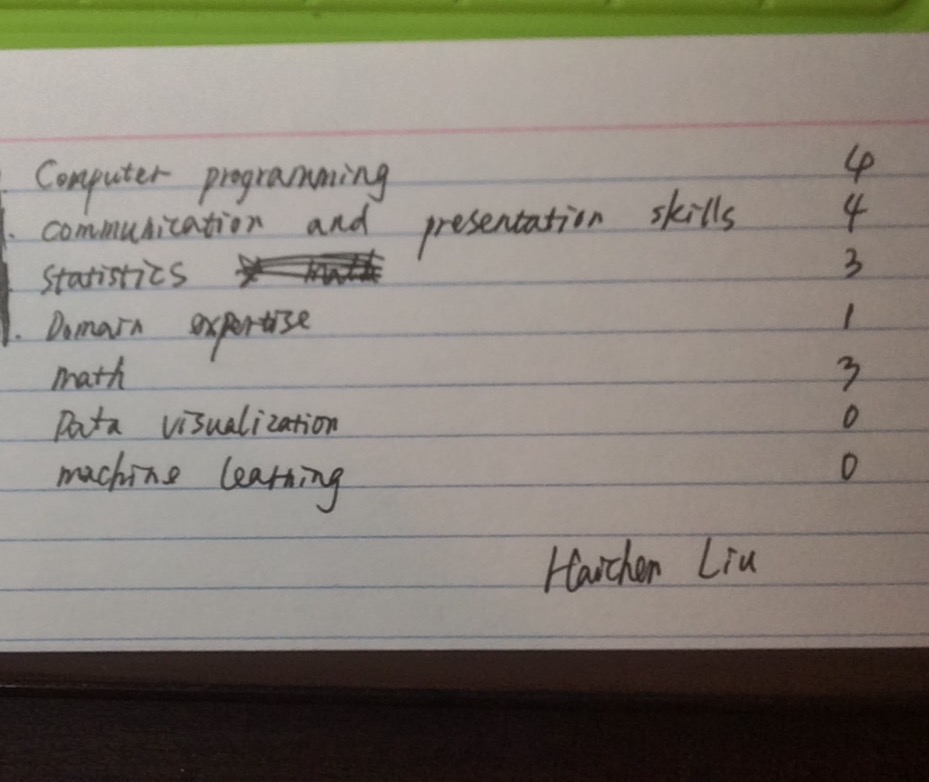 Computer programming 4
communication and presentation skills 4
Statistics 3
Domain expertise 1
math 3
Data visualization 0
machine learning 0
Haichen Liu